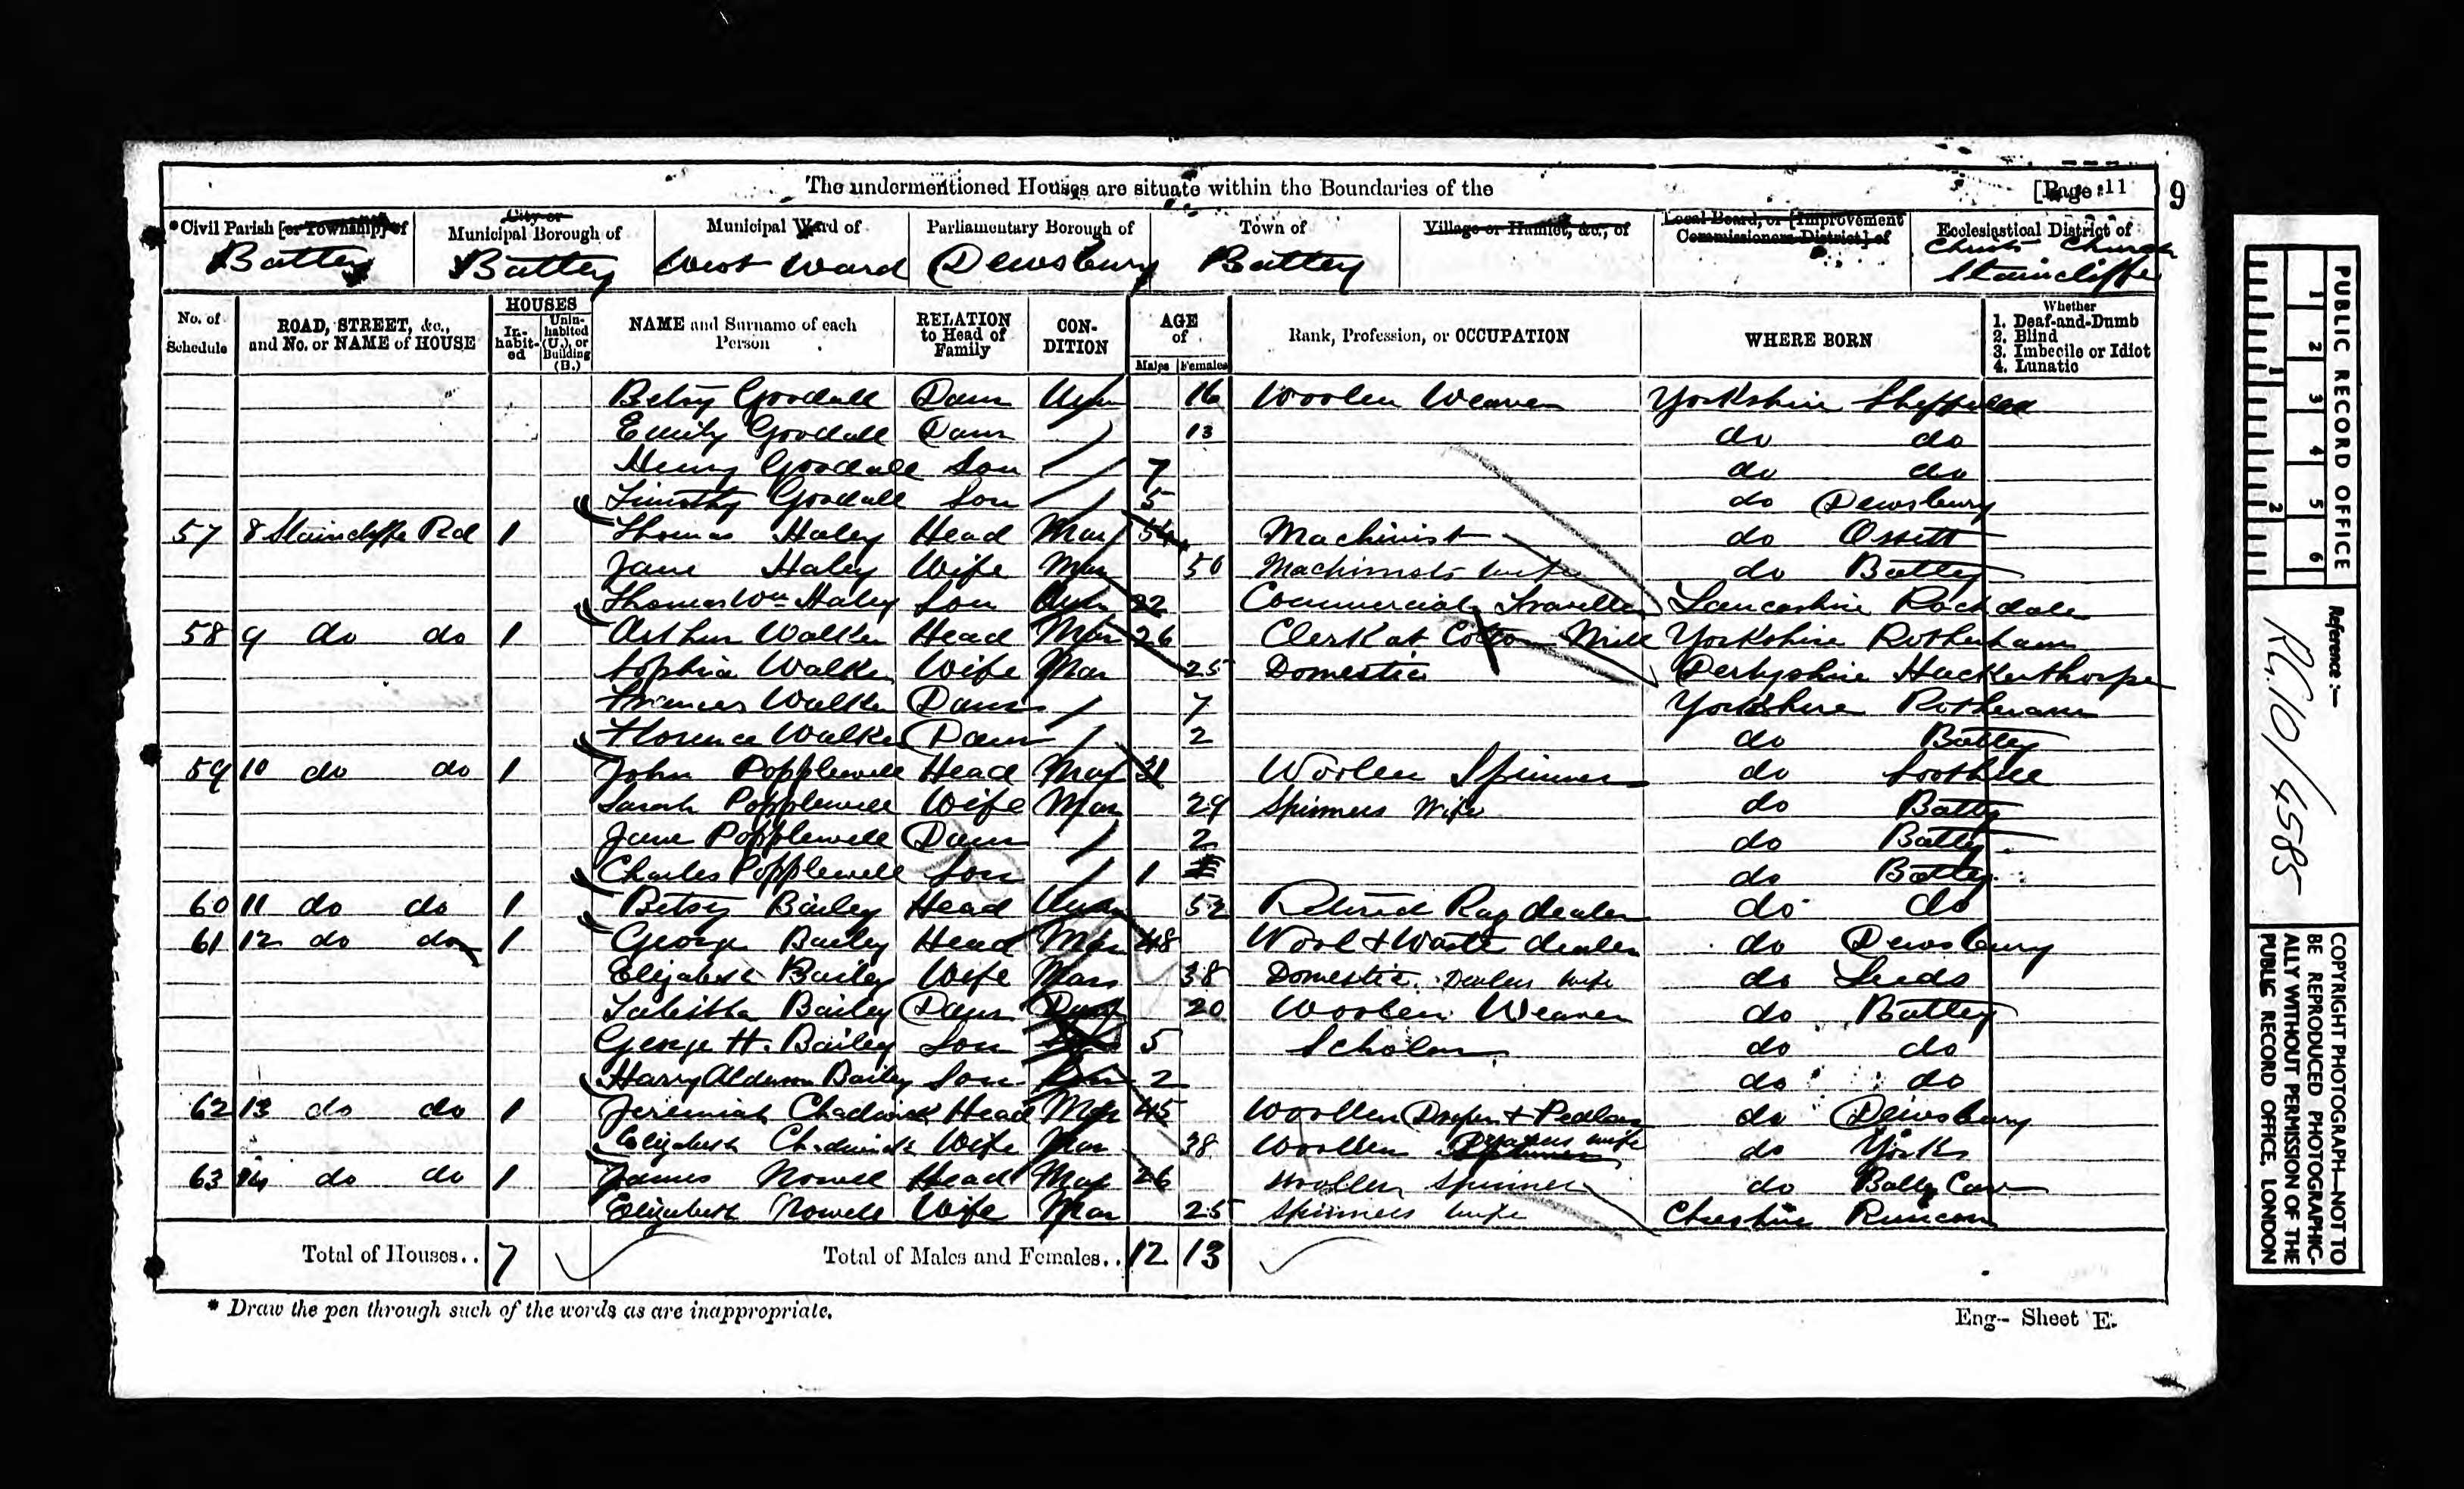 The undermentioned Houses are situate within the Boundaries of the [Page 11 9
*Civil Parish [or Township] of City or Municipal Borough of Municipal Ward of Parliamentary Borough of Town of Village or Hamlet, &c., of Local Board, or [Improvement Commissioners District] of Ecclesiastical District of
Batley Batley West Ward Dewsbury Batley Christ Church Staincliffe
No. of Schedule ROAD, STREET, &c., and No. or NAME of HOUSE HOUSES In-habit-ed Unin-habited (U.), or Building (B.) NAME and Surname of each Person RELATION to Head of Family CON-DITION AGE of Males Females Rank, Profession, or OCCUPATION WHERE BORN Whether 1. Deaf-and-Dumb 2. Blind 3. Imbecile or Idiot 4. Lunatic
Betsy Goodall Daur Unm 16 Woolen Weaver Yorkshire Sheffield
Emily Goodall Daur 13 do do
Henry Goodall Son 7 do do
Timothy Goodall Son 5 do Dewsbury
57 8 Staincliffe Rd 1 Thomas Haley Head Mar 54 Machinist do Ossett
Jane Haley Wife Mar 50 Machinists wife do Batley
Thomas Wm Haley Son Unm 22 Commercial Traveller Lancashire Rochdale
58 9 do do 1 Arthur Walker Head Mar 26 Clerk at Cotton Mill Yorkshire Rotherham
Sophia Walker Wife Mar 25 Domestic Derbyshire Hackenthorpe
Frances Walker Daur 7 Yorkshire Rotheram
Florence Walker Daur 2 do Batley
59 10 do do 1 John Popplewell Head Mar 31 Woolen Spinner do Soothill
Sarah Popplewell Wife Mar 29 Spinners Wife do Batley
Jane Popplewell Daur 2 do Batley
Charles Popplewell Son 1 do Batley
60 11 do do 1 Betsy Bailey Head Unm 52 Retired Rag dealer do do
61 12 do do 1 George Bailey Head Mar 48 Wool & Waste dealer do Dewsbury
Elizabeth Bailey Wife Mar 38 Domestic Dealers wife do Leeds
Tabitha Bailey Daur 20 Woolen Weaver do Batley
George H. Bailey Son 5 Scholar do do
Harry Alderson Bailey Son 2 do do
62 13 do do 1 Jeremiah Chadwick Head Mar 45 Woollen Draper & Pedlar do Dewsbury
Elizabeth Chadwick Wife Mar 38 Woollen Drapers wife do York
63 14 do do 1 James Nowell Head Mar 26 Woollen Spinner do Batley Carr
Elizabeth Nowell Wife Mar 25 Spinners wife Cheshire Runcorn
Total of Houses.. 7 Total of Males and Females.. 12 13
* Draw the pen through such of the words as are inappropriate.
Eng- Sheet E.
PUBLIC RECORD OFFICE
1 2 3 4 5 6
1 2
Reference:-
RG.10/4585
COPYRIGHT PHOTOGRAPH—NOT TO
BE REPRODUCED PHOTOGRAPHIC-
ALLY WITHOUT PERMISSION OF THE
PUBLIC RECORD OFFICE, LONDON